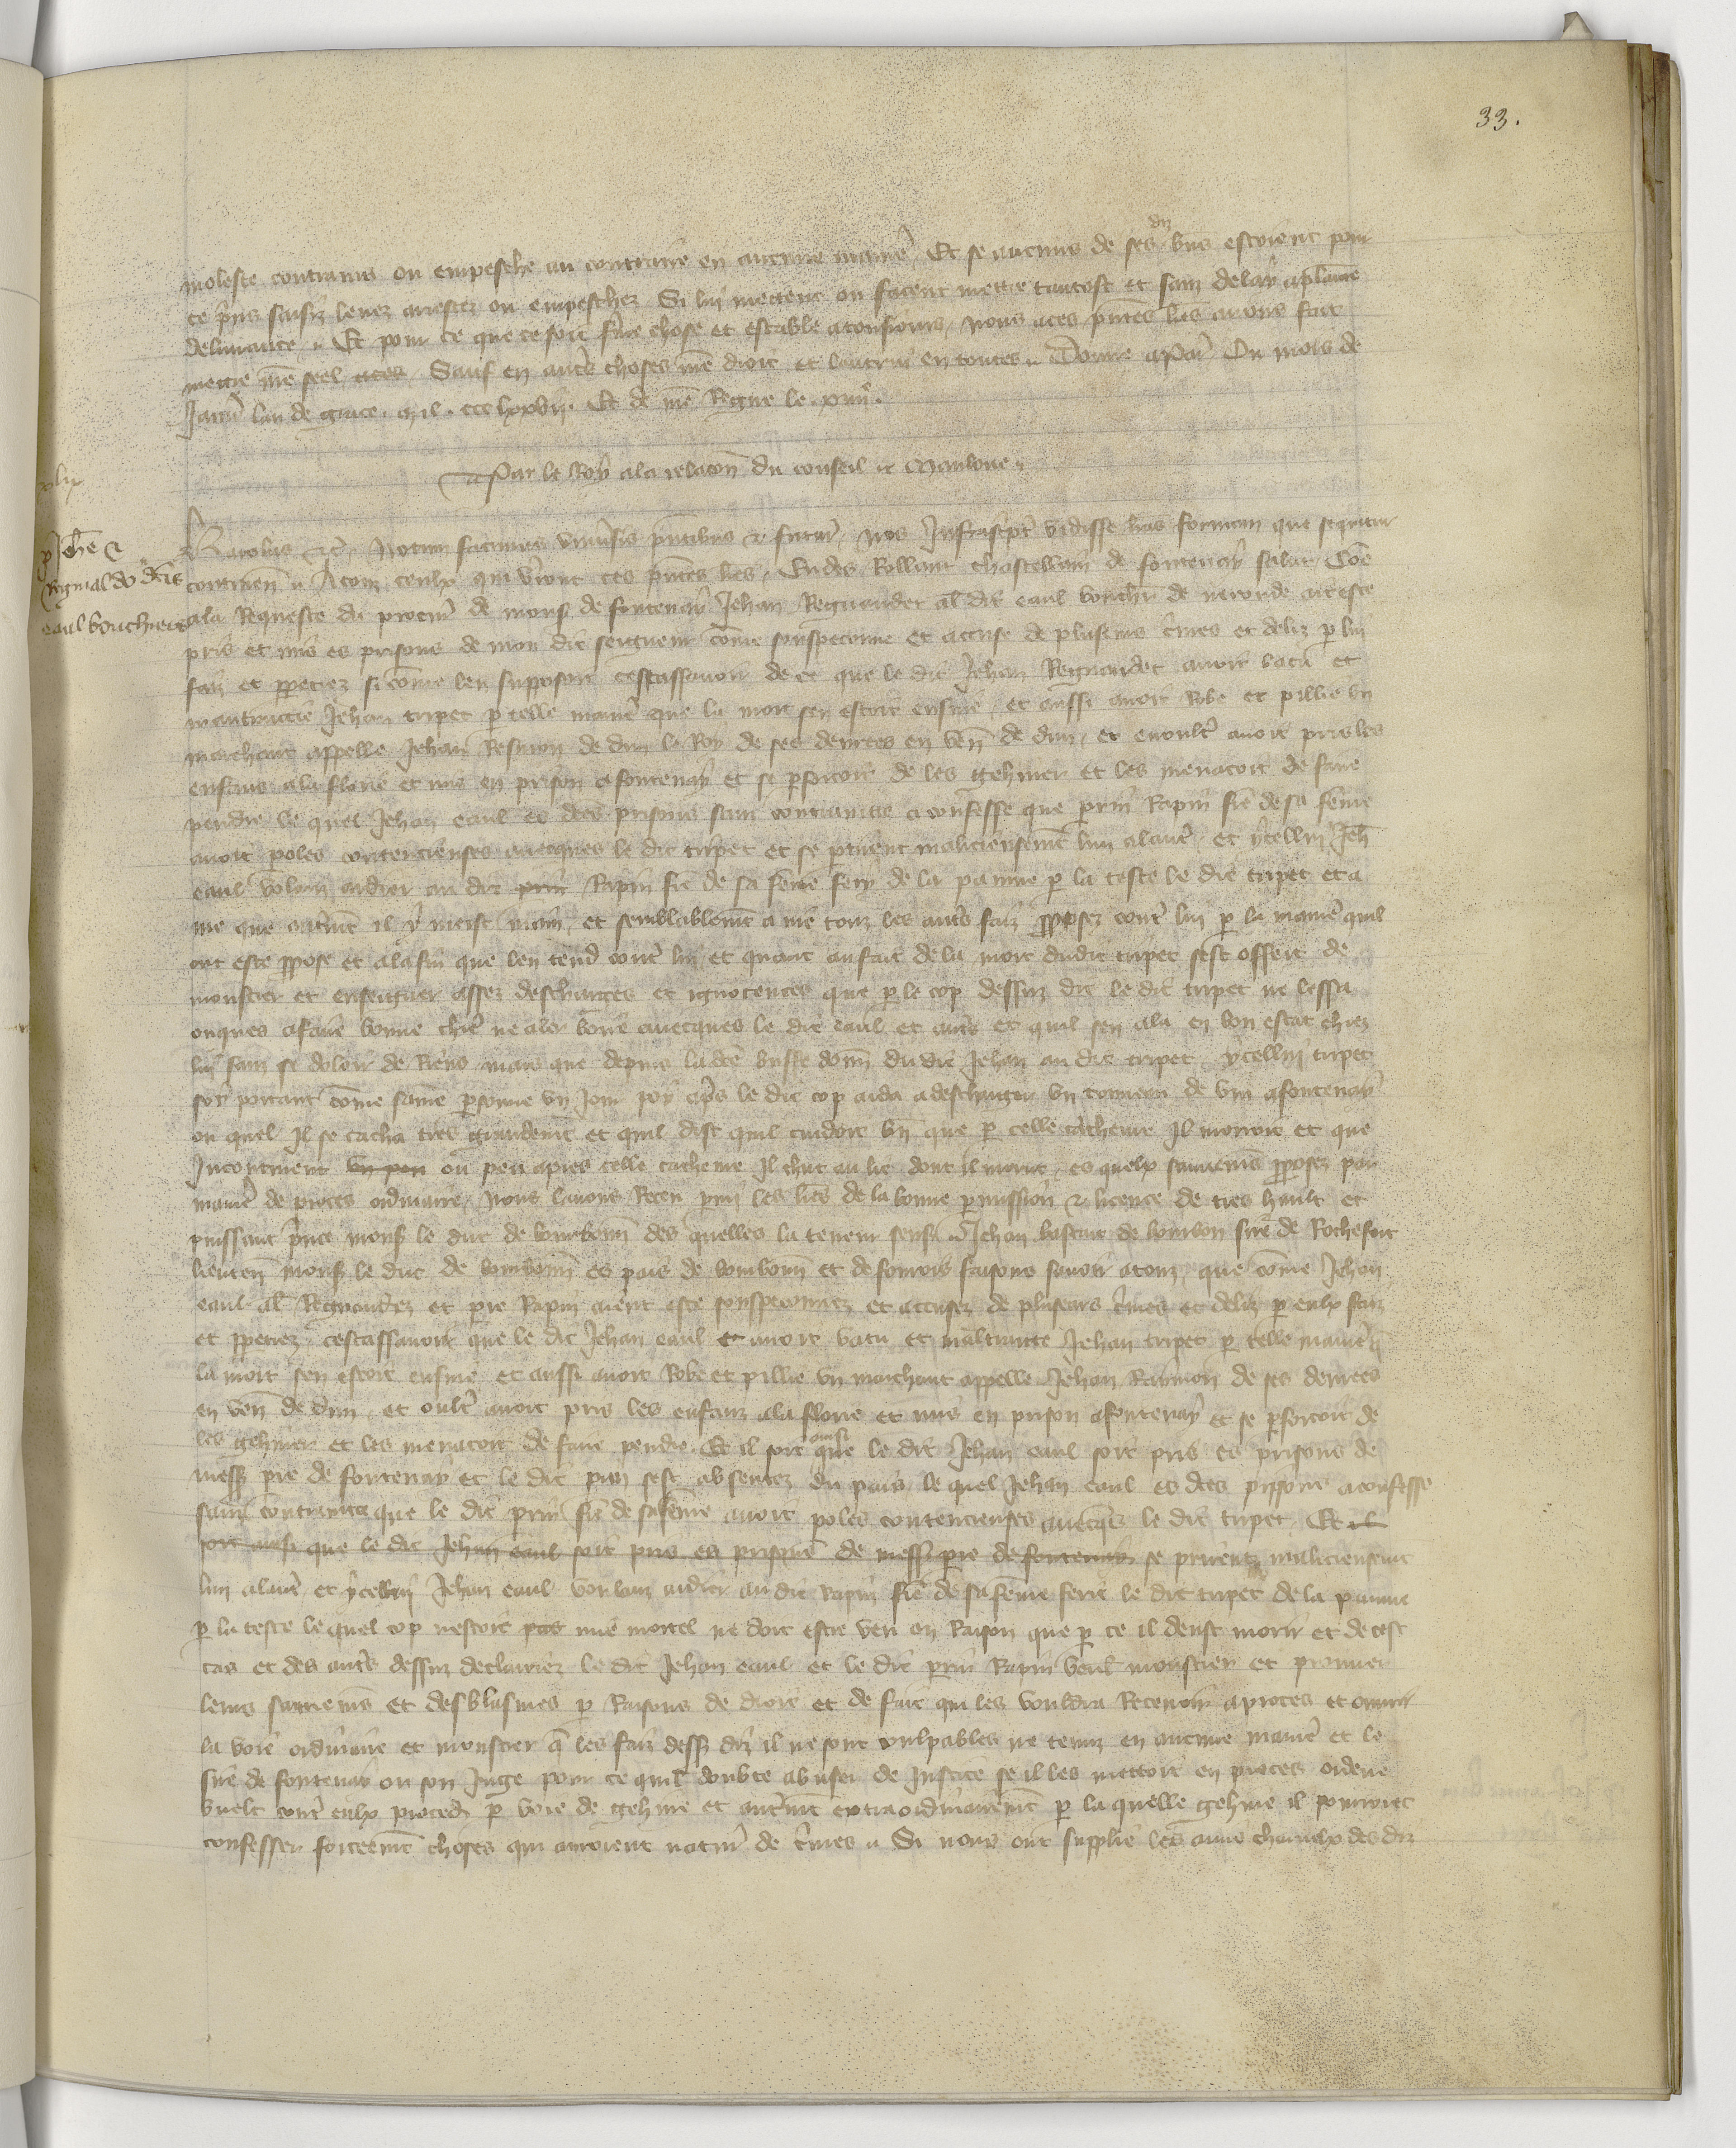 33.
moleste contrains ou empesche au contraire en aucune manie Et se aucuns de ses diz bns estoient pour
ce prins saisiz levez arrestez ou empeschez Si lui mettent ou facent mettre tantost et sanz delay a plaine
delivrance Et pour ce que ce soit ferme chose et estable a tousiours Nous a ces pntes lres avons fait
mettre nre seel Sauf en autres choses nre droit et lautruy en toutes Donne a Par Ou mois de
Janvr lan de grace mil ccc lxxvii Et de nre Regne le xiiii
Par le Roy a la relacon du conseil Manhoue
xlix
p Jehe &
Reginaldo dcis
eaul bouchiers
Karolus &c Notum facimus univsis pntibus & futur Nos Infrascpt vidisse lras formam que sequitur
continen A touz ceulx qui verront ces pntes lres Eudes Rollant chastellain de fontenay salut Coe
a la Requeste du procur de mons de fontenay Jehan Regnaudet al dit eaul bouchr de nevonde ait este
pris et mis es prisons de mon dit seigneur come souspeconne et accuse de plusurs cmes et deliz p lui
faiz et ppetrez si come len supposoit cestassavoir de ce que le dit Jehan Regnaudet avoit batu et
maltraictie Jehan tripet p telle manie que la mort sen estoit ensuie et aussi avoir Robe et pillie un
marchant appelle Jehan Resmon de dun le Roy de ses denrees en ven de dun et en oultr avoit pris les
enfans a la florie et mis en prison a fontenay et se pforcoit de les gehiner et les menacoit de faire
pendre le quel Jehan eaul es dces prisons sanz contrainte a confesse que prin Rapin fre de sa feme
avoit poles contencieuses avecques le dit tripet et se prirent malicieusemt lun a laut et ycellui Jeh
eaul volanz aidier au dit prin Rapin fre de sa feme feri de la paume p la teste le dit tripet et a
nie que autrmt il y meist main et semblablemt a nie touz les autrs faiz pposez contr lui p la manie quil
ont este ppose et a la fin que len tend contr lui et quant au fait de la mort dudit tripet sest offert de
monstrer et enseigner assez descharges et ignocences que p le cop dessuz dit le dit tripet ne lessa
onques a faire bonne chie ne aler boire avecques le dit eaul et autrs et quil sen ala en bon estat chiez
lui sanz se doloir de Riens mais que depuis la dce buffe donn dudit Jehan au dit tripet ycellui tripet
soy portant come saine psonne un Jour pou aps le dit cop aida a deschargier un tonneau de vin a fontenay
ou quel Il se cacha tres grandemt et quil dist quil cuidoit bn que p celle cacheure Il morroit et que
Incontinent un pou ou peu apres celle cacheure Il chut au lit dont il morut es quelx sauvemens pposez par
manie de proces ordinaire Nous lavons Receu prin les lres de la bonne pmission & licence de tres hault et
puissant prince mons le duc de bourbonn des quelles la teneur sensuit Jehan bastart de bourbon sire de Rochefort
lieuten mons le duc de bourbonn es pais de bourbonn et de forois faisons savoir a touz que come Jehan
eaul al Regnaudez et pre Rapin aient este souspeconnez et accusez de pluseurs cmes et deliz p eulx faiz
et ppetrez cestassavoir que le dit Jehan eaul et avoit batu et maltraicte Jehan tripet p telle manie q
la mort sen estoit ensuie et aussi avoit Robe et pillie un marchant appelle Jehan Raimon de ses denrees
en ven de dun et oultr avoit pris les enfanz a la florie et mis en prison a fontenay et se pforcoit de
les gehiner et les menacoit de faire pendre Et il soit ainsi que le dit Jehan eaul soit pris es prisons de
mess pre de fontenay et le dit prin sest absentez du pais le quel Jehan eaul es dces prisons a confesse
sanz contrainte que le dit prin fre de sa feme avoit poles contencieuses avecques le dit tripet Et il
soit ainsi que le dit Jehan eaul soit pris es prisons de mess pre de fontenay se prirent malicieusemt
lun a laut et ycellui Jehan eaul voulanz aidier au dit Rapin fre de sa feme ferit le dit tripet de la paume
p la teste le quel cop nestoit pas mie mortel ne doit estre veu en Raison que p ce il deust morir et de cest
cas et des autrs dessuz declairiez le dit Jehan eaul et le dit perrin Rapin veul monstrer et prouver
leurs sauvemens et desblasmes p Raisons de droit et de fait qui les vouldra Recevoir a proces et ouvrir
la voie ordinaire et monstrer q les faiz dess diz il ne sont culpables ne tenuz en aucune manie et le
sire de fontenay ou son Juge pour ce quil doubte abuser de Justice se il les mettoit en proces ordene
vuelt contr eulx proceder p voie de gehine et autrmt extraordinairemt p la quelle gehine il pourroit
confesser forceemt choses qui auroient natur de cmes Si nous ont supplie les amis charnelx des diz